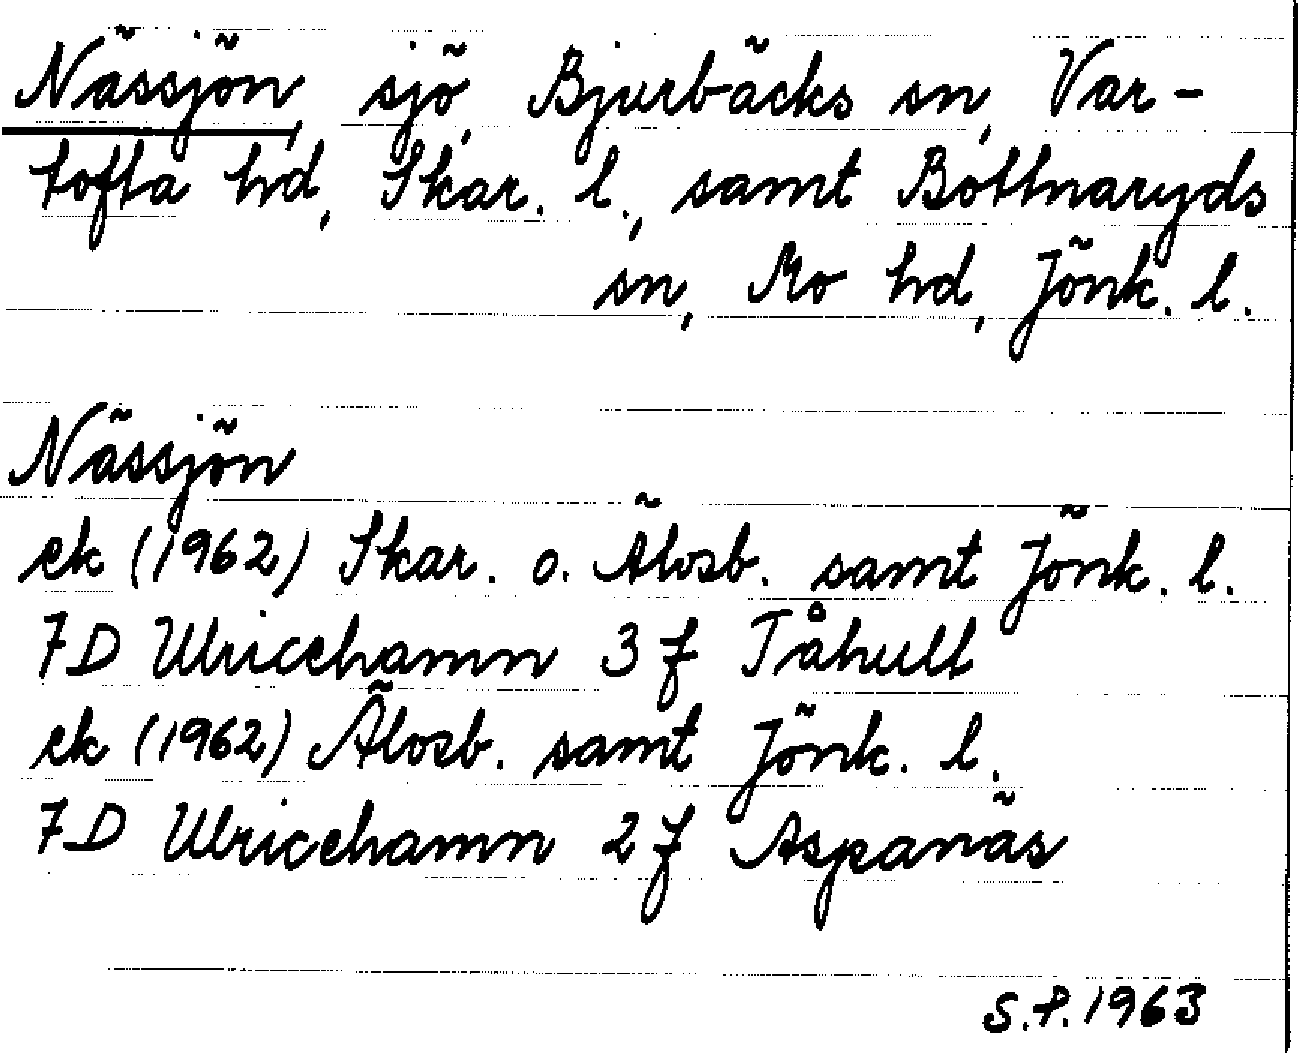 Nässjön, sjö, Bjurbäcks sn, Var-
tofta hd, Skar. l., samt Bottnaryds
sn, Mo hd, Jönk. l.
Nässjön
ek (1962) Skar. o. Älvsb. samt Jönk. l.
7D Ulricehamn 3 f Tåhult
ek (1962) Älvsb. samt Jönk. l.
7D Ulricehamn 2 f Aspanäs
S.P. 1963